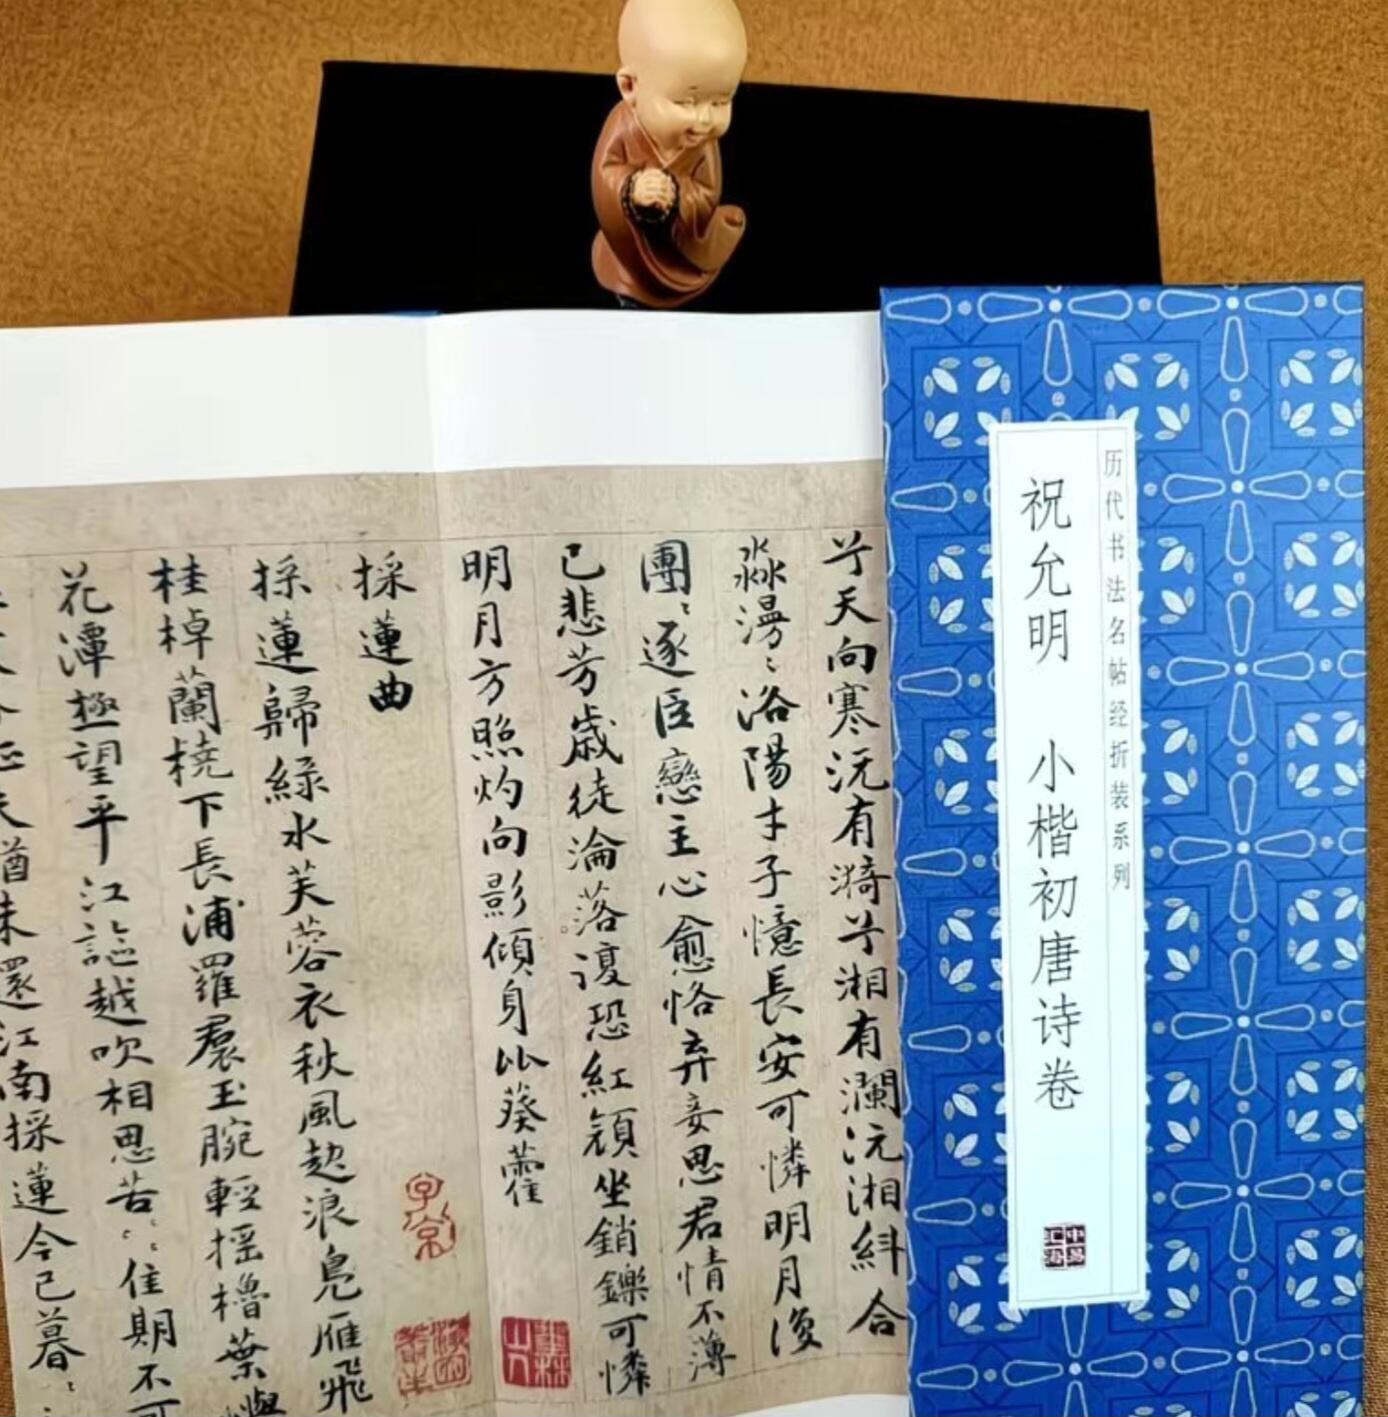 历代书法名帖经折装系列
祝允明 小楷初唐诗卷
兮天向寒沅有漪兮湘有瀾沅湘糾合
淼漫〻洛陽才子憶長安可憐明月復
團〻逐臣戀主心愈恪弃妾思君情不薄
已悲芳歲徒淪落復恐紅顔坐銷鑠可憐
明月方照灼向影傾身比葵藿
採蓮曲
採蓮歸綠水芙蓉衣秋風起浪鳧雁飛
桂棹蘭橈下長浦羅裙玉腕輕摇櫓葉嶼
花潭極望平江謳越吹相思苦〻〻佳期不可
未還江南採蓮今已暮〻